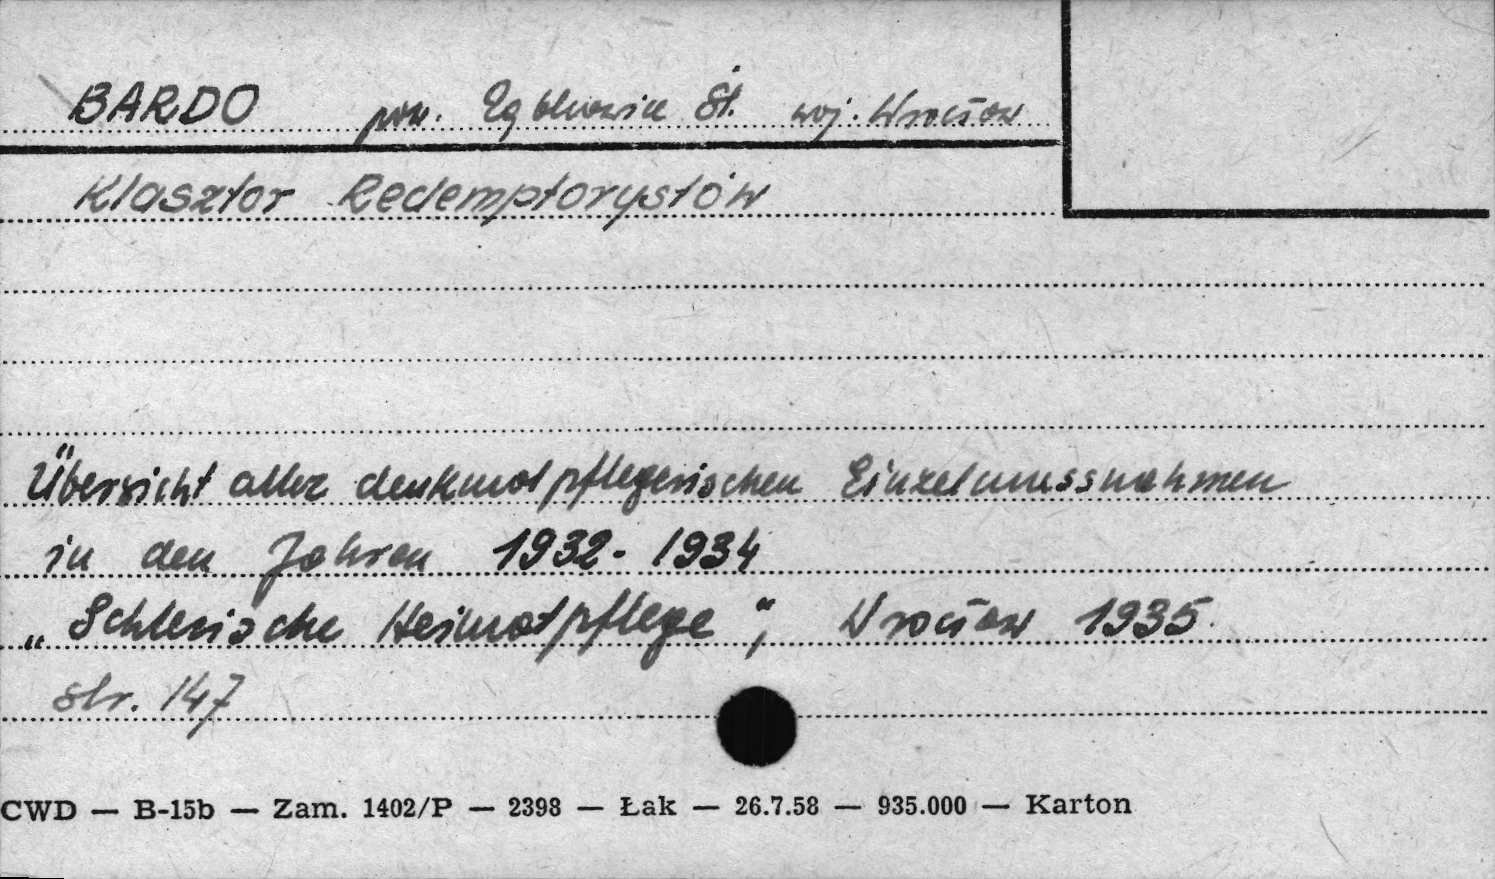 BARDO pow. Ząbkowice Śl. woj. Wrocław
Klasztor Redemptorystów
Übersicht aller denkmalpflegerischen Einzelmassnahmen
in den Jahren 1932-1934
„Schlesische Heimatpflege“, Wrocław 1935
str. 147
CWD — B-15b — Zam. 1402/P — 2398 — Łak — 26.7.58 — 935.000 — Karton